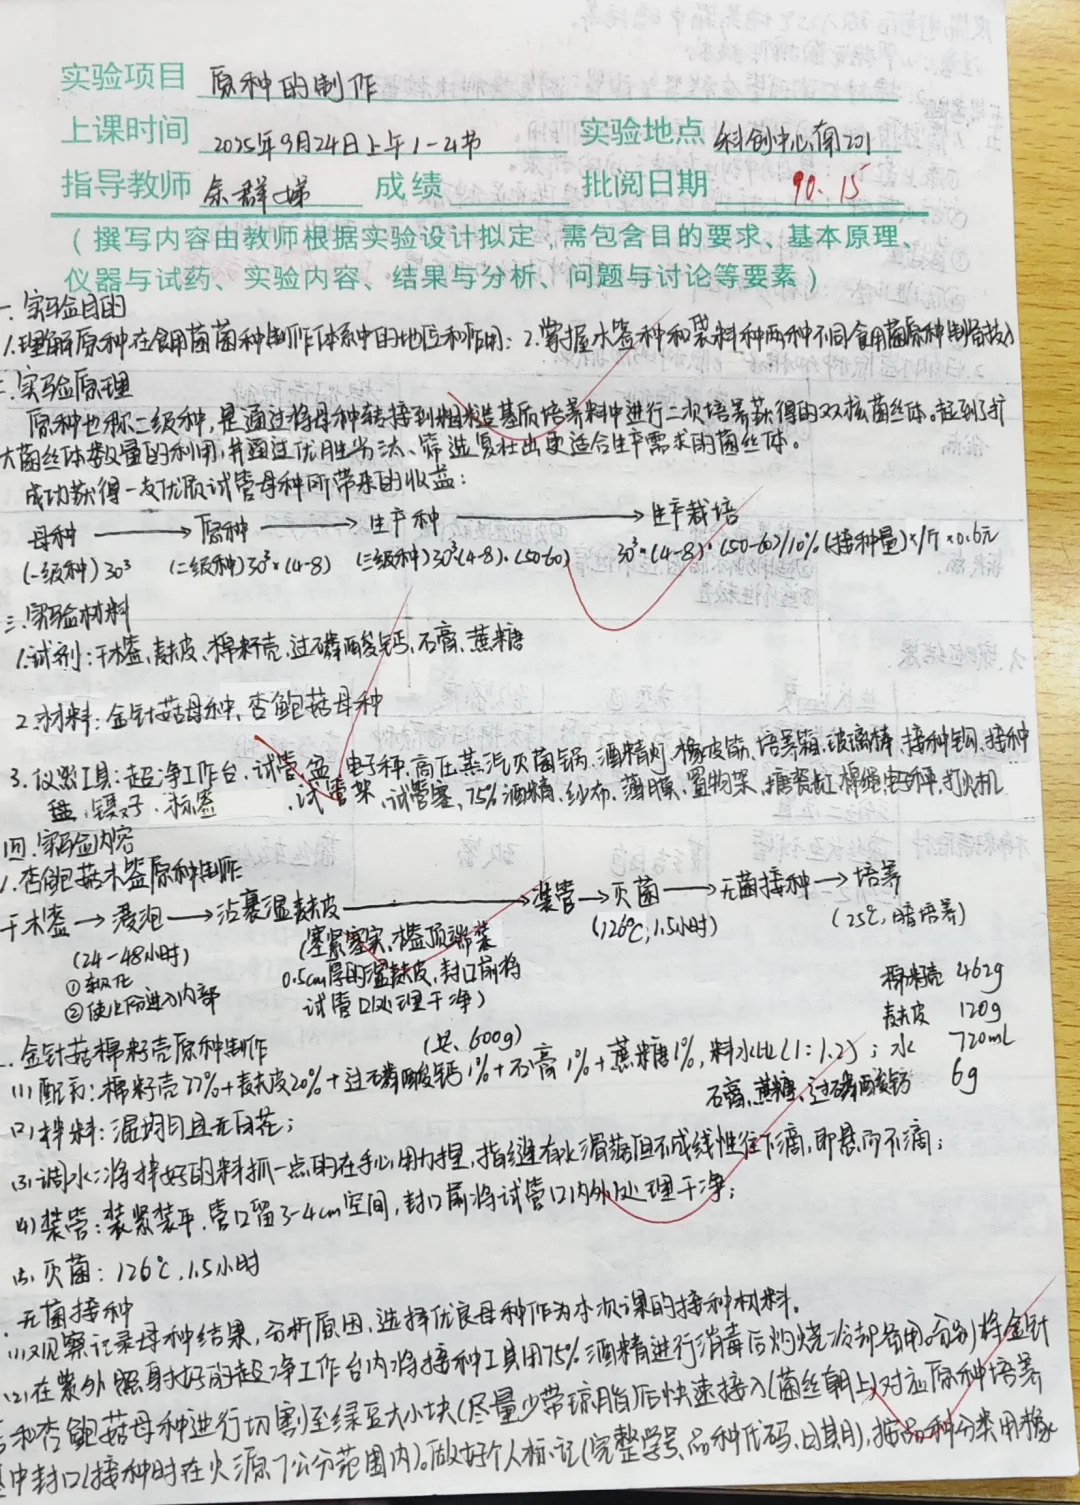 实验项目 原种的制作
上课时间 2025年9月24日上午1-2节 实验地点 科创中心南201
指导教师 余群娣 成绩 批阅日期 90. 15
(撰写内容由教师根据实验设计拟定,需包含目的要求、基本原理、
仪器与试药、实验内容、结果与分析、问题与讨论等要素)
一.实验目的
1.理解原种在食用菌菌种制作体系中的地位和作用;2.掌握木签种和袋料种两种不同食用菌原种制备技
二.实验原理
原种也称二级种,是通过将母种转接到粗糙基质培养料中进行二次培养获得的双核菌丝体。起到了扩
大菌丝体数量的利用,并通过优胜劣汰、筛选复壮出更适合生产需求的菌丝体。
成功获得一支优质试管母种所带来的收益:
母种 → 原种 → 生产种 → 生产栽培
(一级种)30³ (二级种)30³×(4-8) (三级种)30³(4-8)·(50-60) 30³×(4-8)·(50-60)/10%(接种量)×/斤×0.6元
三.实验材料
1.试剂:干木签、麸皮、棉籽壳、过磷酸钙、石膏、蔗糖
2.材料:金针菇母种、杏鲍菇母种
3.仪器工具:超净工作台、试管、盆、电子秤、高压蒸汽灭菌锅、酒精灯、橡皮筋、培养箱、玻璃棒、接种钩、接种
铲、镊子、标签、试管架、试管塞、75%酒精、纱布、薄膜、置物架、搪瓷缸、棉绳、电子秤、打火机
四.实验内容
1.杏鲍菇木签原种制作
干木签 → 浸泡 → 沾裹湿麸皮 → 装管 → 灭菌 → 无菌接种 → 培养
(24-48小时) (塞紧塞实,木签顶端装 (126℃,1.5小时) (25℃,暗培养)
①软化 0.5cm厚的湿麸皮,封口前将
②使水分进入内部 试管口处理干净)
棉籽壳 462g
麸皮 120g
2.金针菇棉籽壳原种制作 (共600g)
(1)配方:棉籽壳77%+麸皮20%+过磷酸钙1%+石膏1%+蔗糖1%,料水比(1:1.2); 水 720mL
石膏、蔗糖、过磷酸钙 6g
(2)拌料:混均匀且无白花;
(3)调水:将拌好的料抓一点的在手心用力捏,指缝有水滑落但不成线性往下滴,即悬而不滴;
(4)装管:装紧装平,管口留3-4cm空间,封口前将试管口内外处理干净;
(5)灭菌:126℃,1.5小时
无菌接种
(1)观察记录母种结果,分析原因,选择优良母种作为本次课的接种材料。
(2)在紫外照射好的超净工作台内将接种工具用75%酒精进行消毒后灼烧冷却备用。分别将金针
和杏鲍菇母种进行切割至绿豆大小块(尽量少带琼脂)后快速接入(菌丝朝上)对应原种培养
中封口(接种时在火源7公分范围内)。做好个人标记(完整学号、品种代码、日期),按品种分类用橡